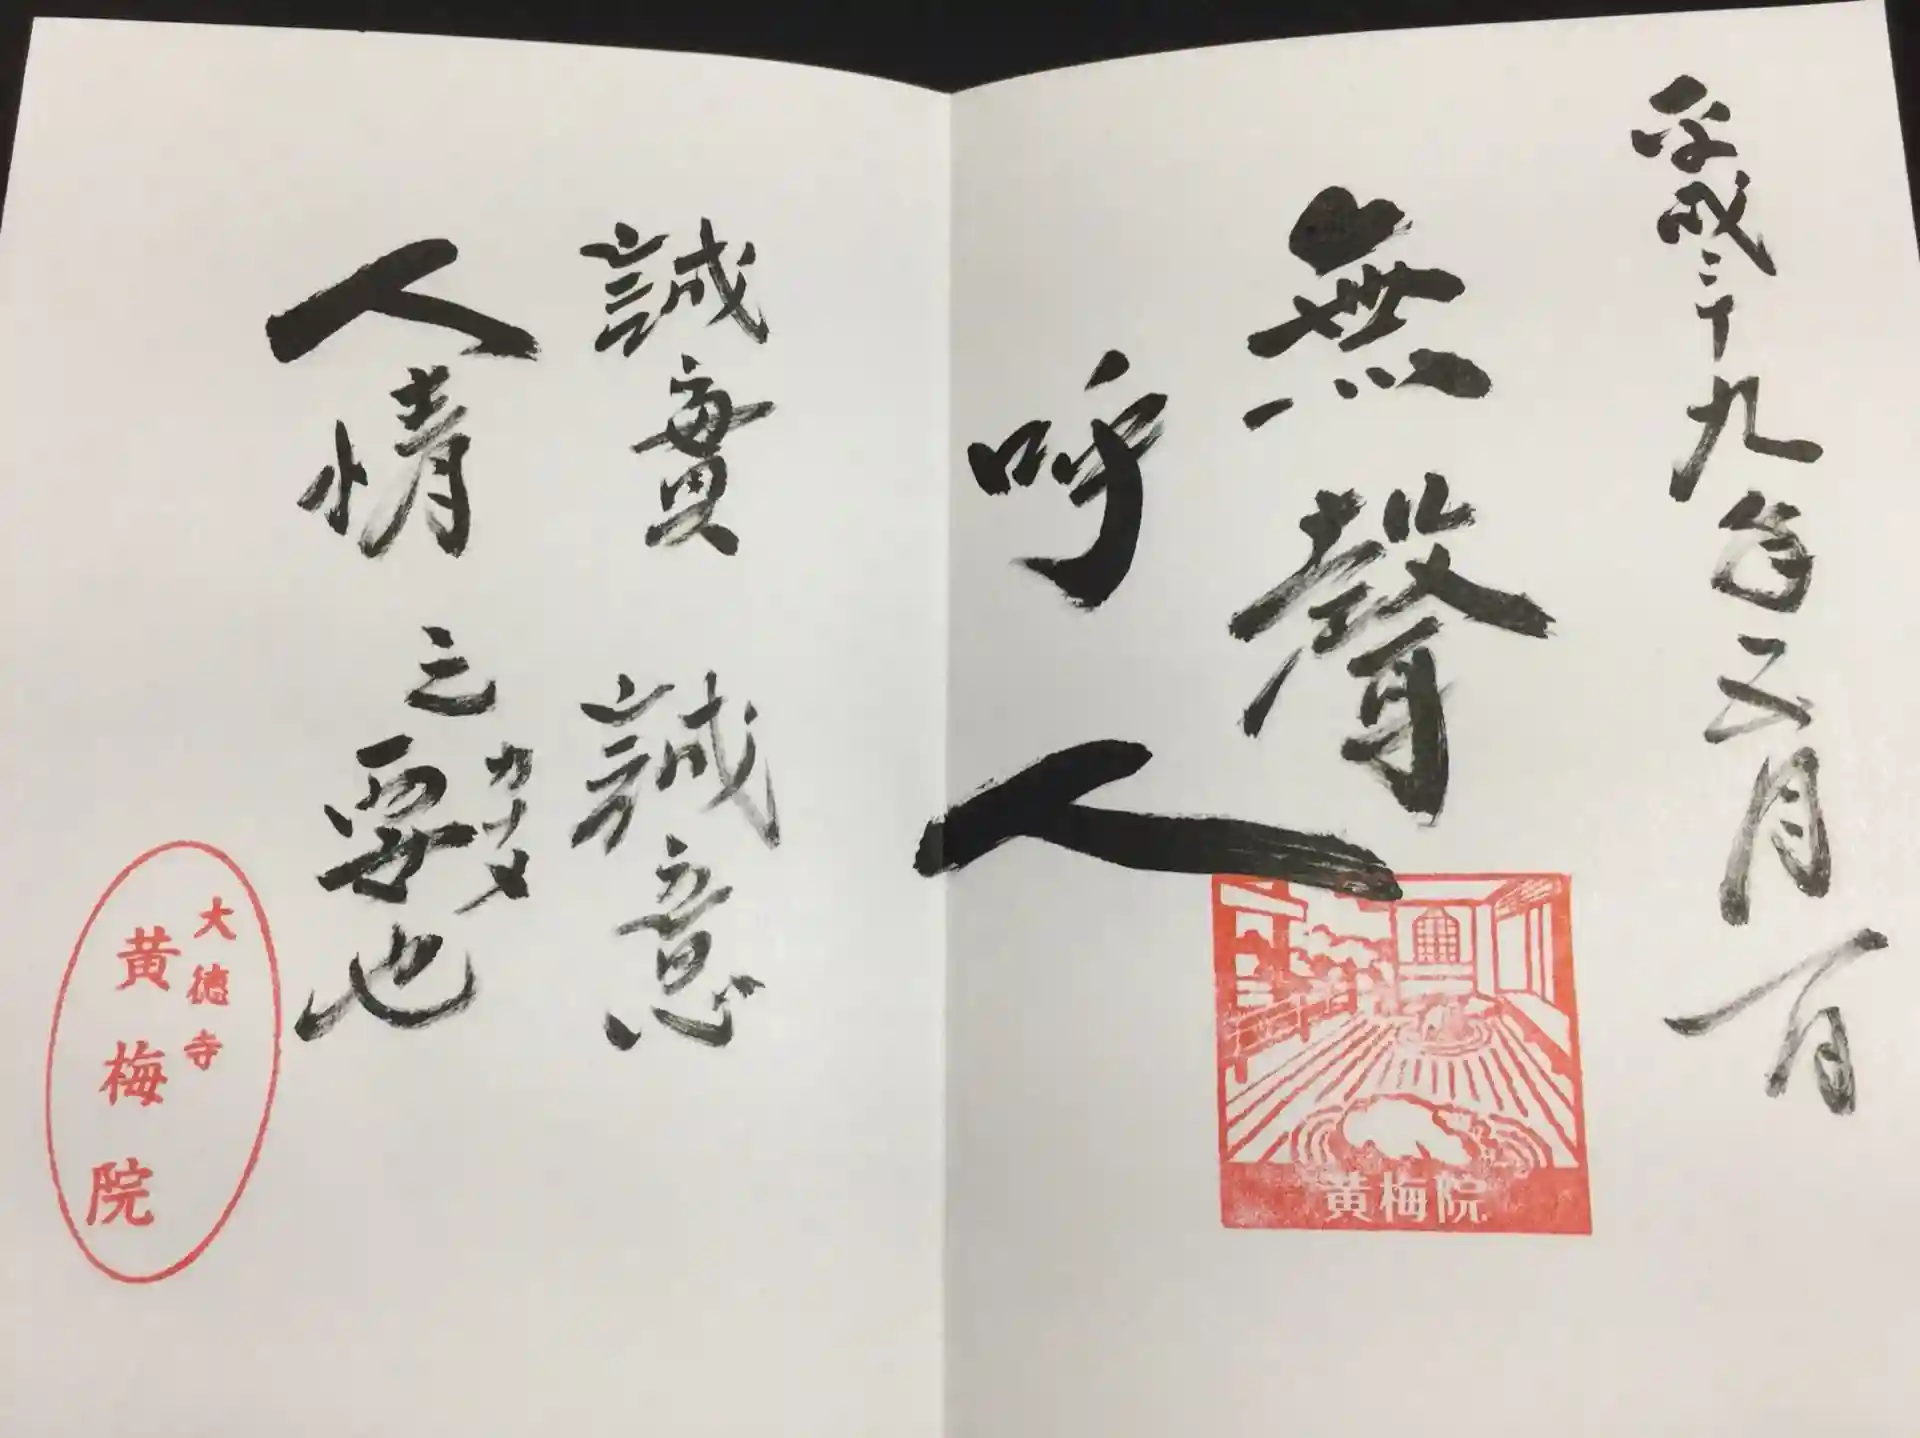 平成二十九年五月一日
無聲
呼人
黄梅院
誠實 誠意
人情之要也
カナメ
大徳寺
黄梅院